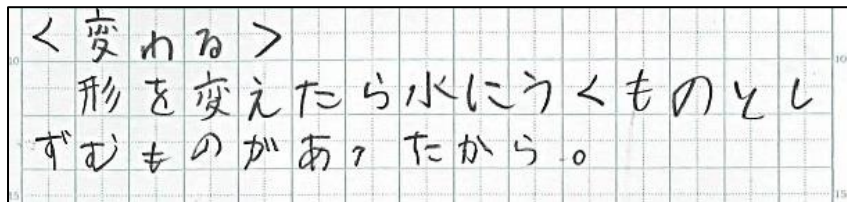 <変わる>
形を変えたら水にうくものとし
ずむものがあったから。